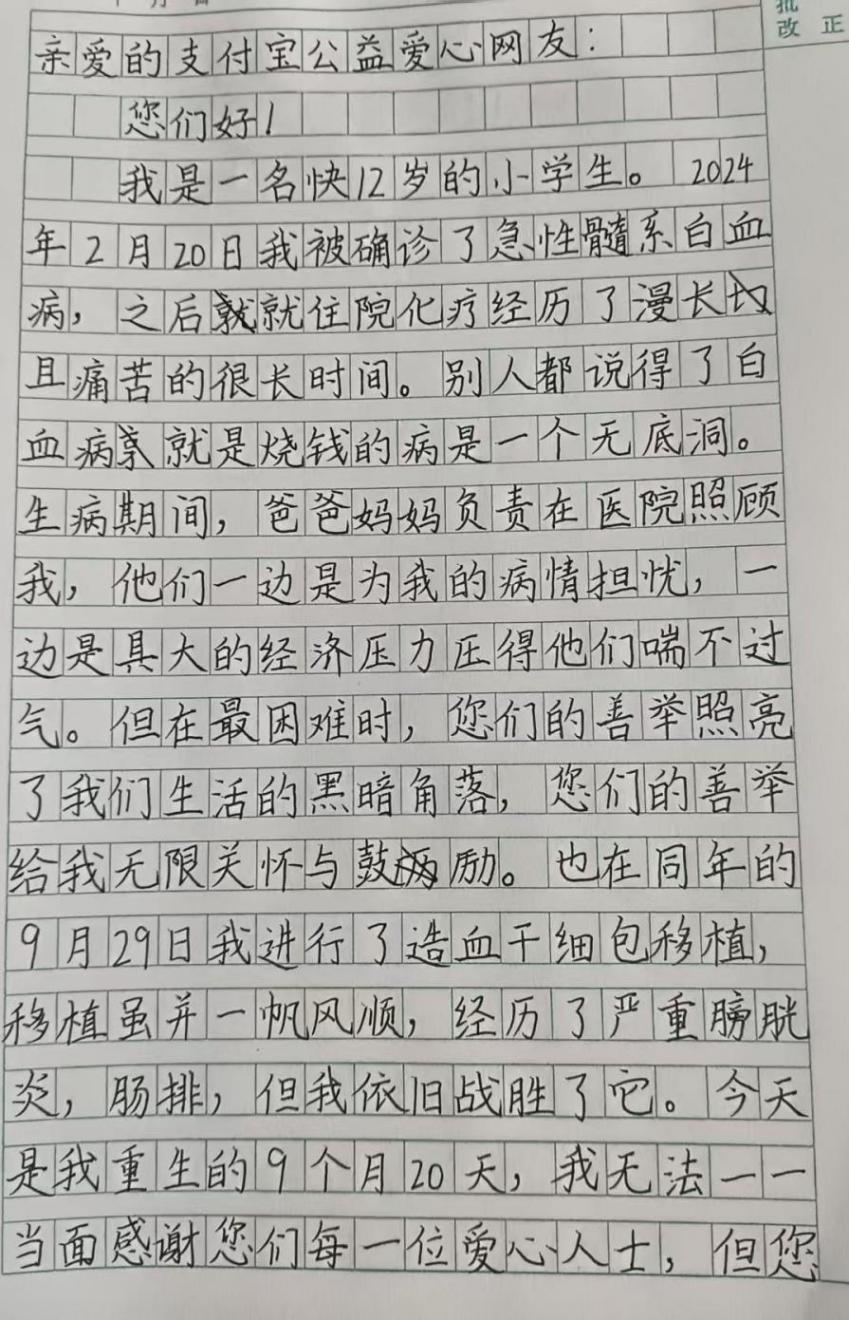 批
改 正
亲爱的支付宝公益爱心网友：
您们好！
我是一名快12岁的小学生。 2024
年2月20日我被确诊了急性髓系白血
病，之后就就住院化疗经历了漫长
且痛苦的很长时间。别人都说得了白
血病就是烧钱的病是一个无底洞。
生病期间，爸爸妈妈负责在医院照顾
我，他们一边是为我的病情担忧，一
边是具大的经济压力压得他们喘不过
气。但在最困难时，您们的善举照亮
了我们生活的黑暗角落，您们的善举
给我无限关怀与鼓励。也在同年的
9月29日我进行了造血干细包移植，
移植虽并一帆风顺，经历了严重膀胱
炎，肠排，但我依旧战胜了它。今天
是我重生的9个月20天，我无法一一
当面感谢您们每一位爱心人士，但您